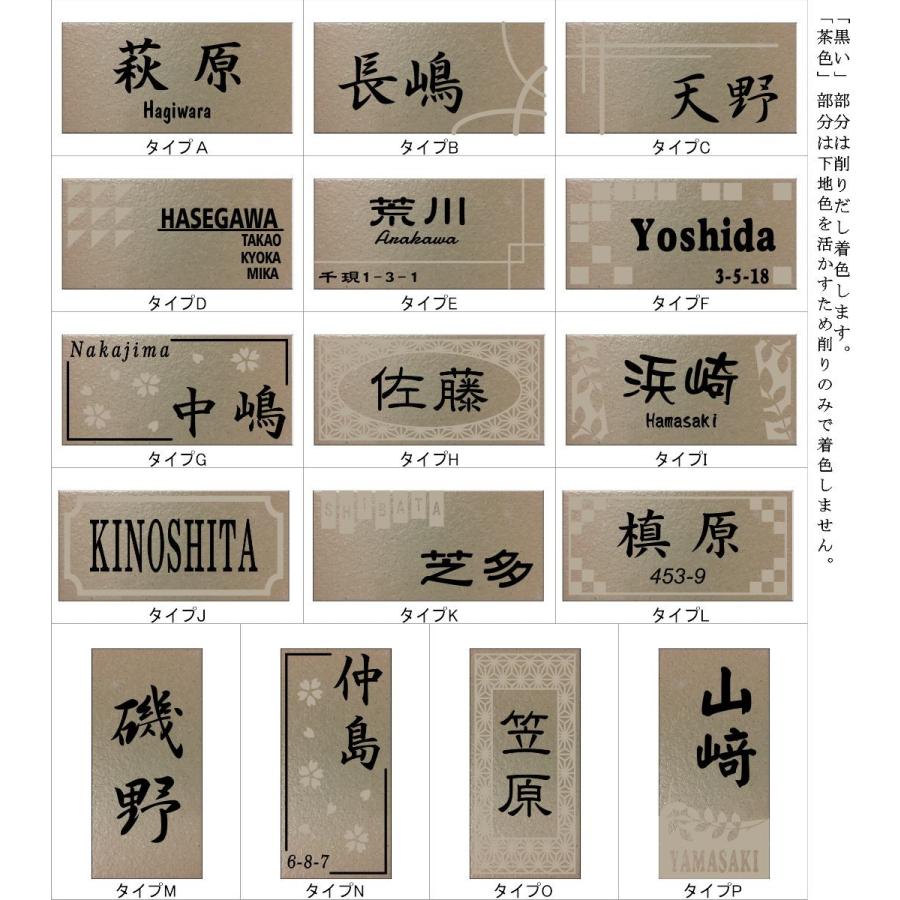 萩原
Hagiwara
タイプA
長嶋
タイプB
天野
タイプC
HASEGAWA
TAKAO
KYOKA
MIKA
タイプD
荒川
Arakawa
千現1-3-1
タイプE
Yoshida
3-5-18
タイプF
Nakajima
中嶋
タイプG
佐藤
タイプH
浜崎
Hamasaki
タイプI
KINOSHITA
タイプJ
SHIBATA
芝多
タイプK
槙原
453-9
タイプL
磯野
タイプM
仲島
6-8-7
タイプN
笠原
タイプO
山﨑
YAMASAKI
タイプP
「黒い」部分は削りだし着色します。
「茶色」部分は下地色を活かすため削りのみで着色しません。